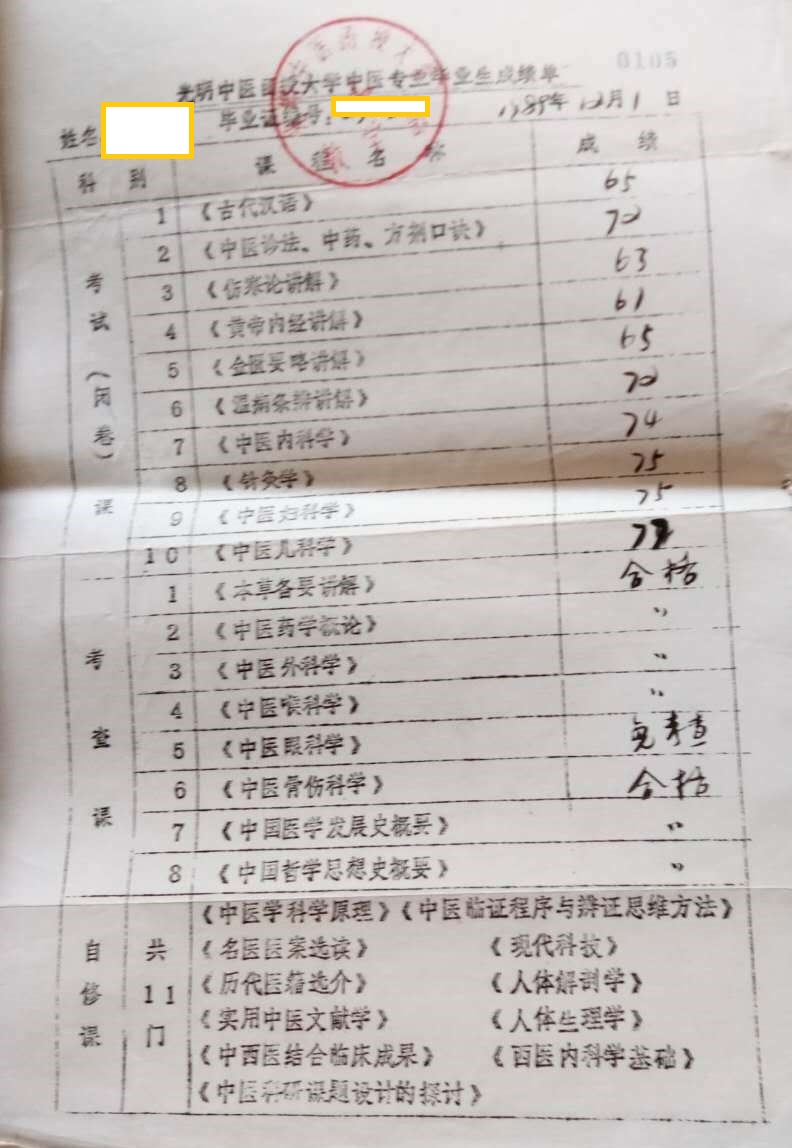 0105
光明中医函授大学中医专业毕业生成绩单
姓名 毕业证编号: 1989年12月1日
科别 课程名称 成绩
考试(闭卷)课
1 《古代汉语》 65
2 《中医诊法、中药、方剂口诀》 70
3 《伤寒论讲解》 63
4 《黄帝内经讲解》 61
5 《金匮要略讲解》 65
6 《温病条辨讲解》 70
7 《中医内科学》 74
8 《针灸学》 75
9 《中医妇科学》 75
10 《中医儿科学》
考查课
1 《本草备要讲解》 合格
2 《中医药学概论》 〃
3 《中医外科学》 〃
4 《中医喉科学》 〃
5 《中医眼科学》 免考查
6 《中医骨伤科学》 合格
7 《中国医学发展史概要》 〃
8 《中国哲学思想史概要》 〃
自修课 共11门
《中医学科学原理》《中医临证程序与辩证思维方法》
《名医医案选读》 《现代科技》
《历代医籍选介》 《人体解剖学》
《实用中医文献学》 《人体生理学》
《中西医结合临床成果》 《西医内科学基础》
《中医科研课题设计的探讨》